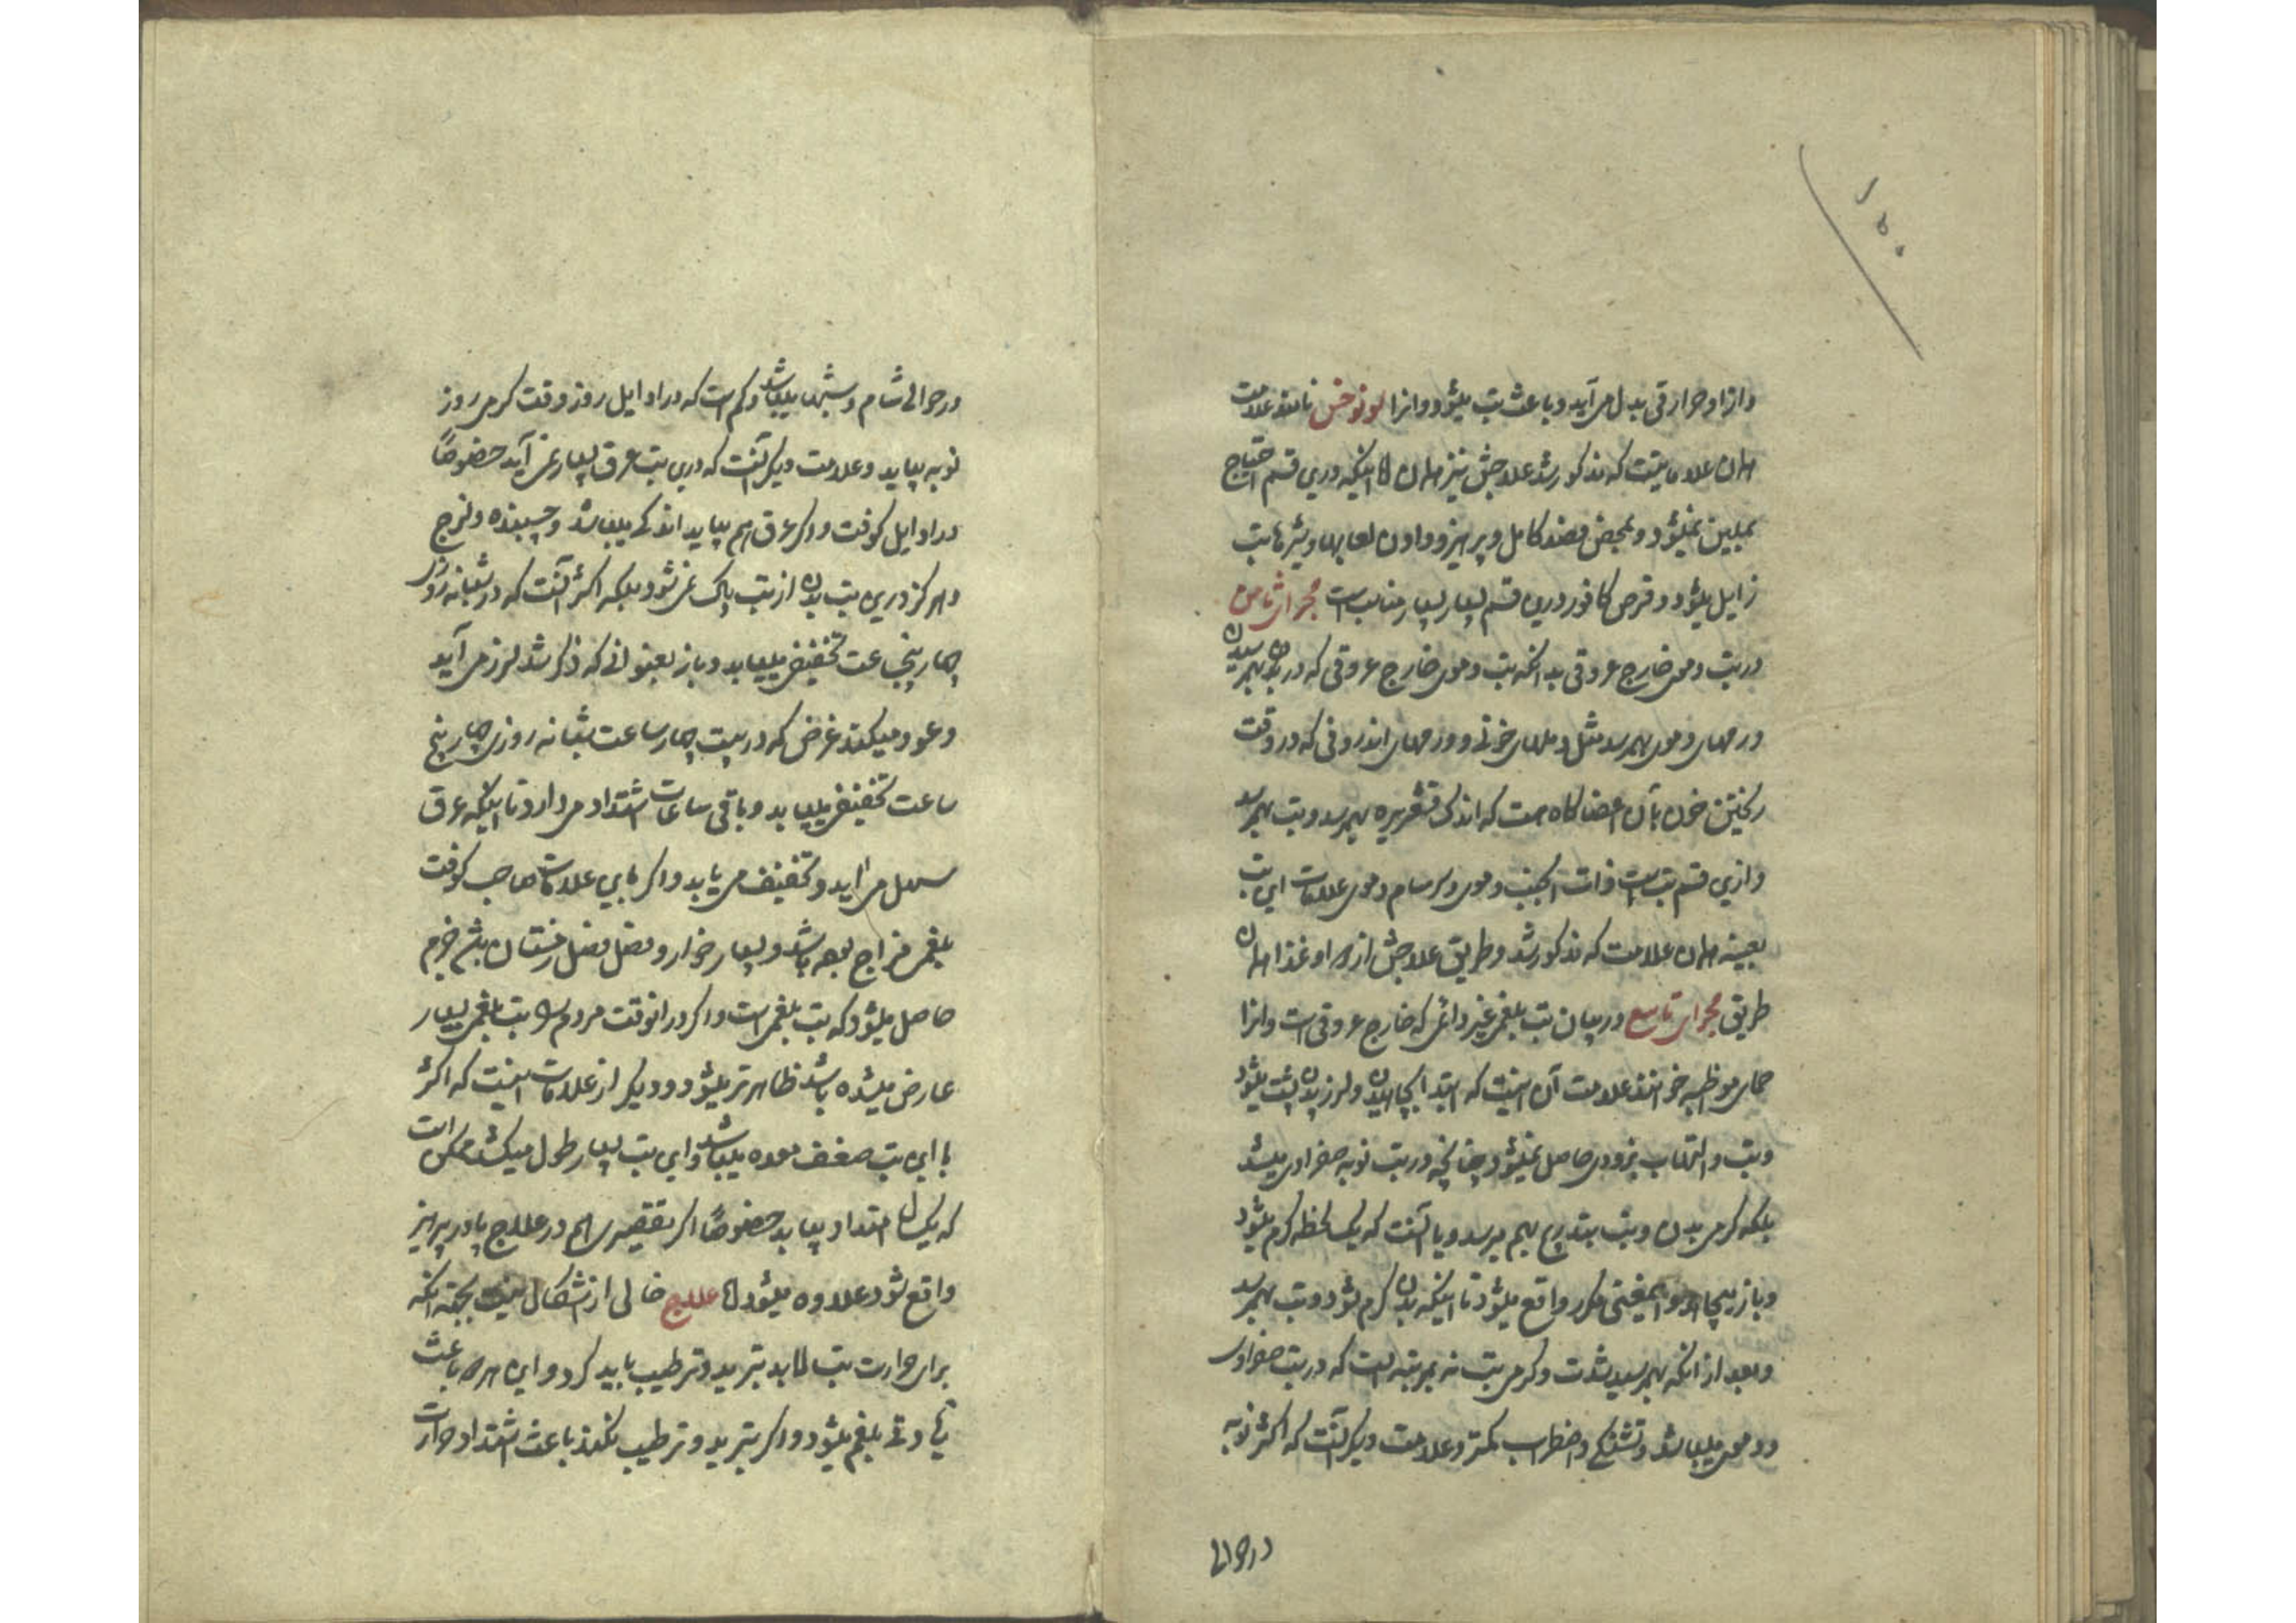 و ازا و حرارتی بدل می آید و باعث تب میشود و انرا سونوخس نامند علامت
همان علاماتیست که مذکور شد علاجش نیز همان اما اینکه درین قسم احتیاج
بملین نمیشود و بمحض فصد کامل و پرهیز و دادن لعابها و شیرها تب
زایل میشود و قرص کافور درین قسم بسیار بسیار مناسب است مجرای ثامن
در تب دموی خارج عروقی بدانکه تب دموی خارج عروقی که در بهم رسیدن
ورمهای دموی بهم رسد مثل دملهای خونی و ورمهای اندرونی که در وقت
ریختن خون بآن اعضا گاه هست که اندک قشعریره بهمرسد و تب بهمرسد
و ازین قسم تب است ذات الجنب دموی و سرسام دموی علامات این تب
بعینه همان علامت که مذکور شد و طریق علاجش از دوا و غذا همان
طریق مجرای تاسع در بیان تب بلغمی غیر دائمی که خارج عروقی است و انرا
حمای مواظبه خوانند علامت آن اینست که ابتدا بچاهیدن و لرزیدن پشت میشود
و تب و التهاب بزودی حاصل نمیشود چنانچه در تب نوبه صفراوی میشد
بلکه گرمی بدن و تب بتدریج بهم میرسد و یا آنست که یک لحظه گرم میشود
و باز میچاهد و اینمعنی مکرر واقع میشود تا اینکه بدن گرم شود و تب بهمرسد
و بعد از انکه بهمرسید شدت و گرمی تب نه بمرتبه ایست که در تب صفراوی
و دموی میباشد و تشنگی و اضطراب کمتر و علامت دیگر آنست که اکثر نوبه
در حوالی
در حوالی شام و شبها میباشد و کم است که در اوایل روز و وقت گرمی روز
نوبه بیاید و علامت دیگر آنست که درین تب عرق بسیار نمی آید خصوصاً
در اوایل کوفت و اگر عرق هم بیاید اندکی میباشد و چسبنده و لزج
و هرگز درین تب بدن از تب پاک نمی شود بلکه اکثر آنست که در شبانه روزی
چهار پنج ساعت تخفیفی مییابد و باز بعنوانی که ذکر شد لرز می آید
و عود میکند غرض که در بیست چهار ساعت شبانه روزی چهار پنج
ساعت تخفیفی مییابد و باقی ساعات اشتداد می دارد تا اینکه عرق
سهل می آید و تخفیف می یابد و اگر با این علامات صاحب کوفت
بلغمی مزاج بوده باشد و بسیار خوار و فصل فصل زمستان بتن جزم
حاصل میشود که تب بلغمی است و اگر در انوقت مردم را تب بلغمی بسیار
عارض میشده باشد ظاهرتر میشود و دیگر از علامات اینست که اکثر
با این تب ضعف معده میباشد و این تب بسیار طول میکشد ممکن است
که یکسال امتداد بیابد خصوصاً اگر تقصیری هم در علاج یا در پرهیز
واقع شود علاوه میشود اما علاج خالی از اشکال نیست بجهت انکه
برای حرارت تب لابد تبرید و ترطیب باید کرد و این هر دو باعث
زیادتی بلغم میشود و اگر تبرید و ترطیب نکنند باعث اشتداد حرارت